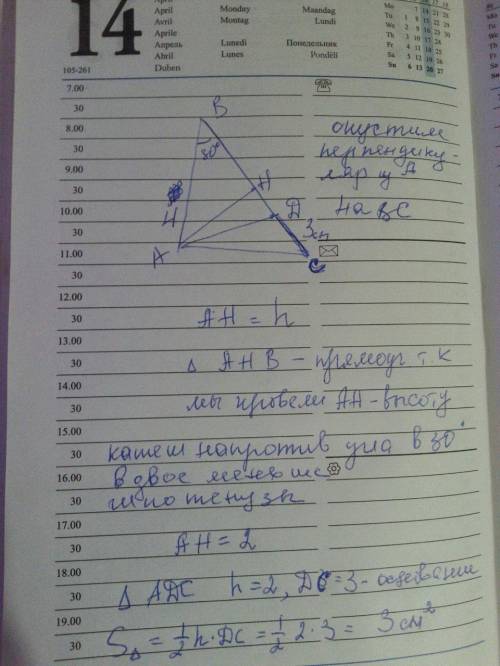 14
April
April
Avril
Aprile
Апрель
Abril
Duben
Monday
Montag
Lunedì
Lunes
Maandag
Lundi
Понедельник
Pondělí
105-261
7.00
30
8.00
30
9.00
30
10.00
30
11.00
30
12.00
30
13.00
30
14.00
30
15.00
30
16.00
30
17.00
30
18.00
30
19.00
30
B
30°
H
Д
4
3см
A
C
опустим
перпендику-
ляр из A
на BC
AH = h
△ AHB – прямоуг т.к
мы провели AA - высоту
катет напротив угла в 30°
в двое меньше
гипотенузы
AH = 2
△ ADC h = 2, DC = 3 - основании
S△ = 1/2 h · DC = 1/2 2 · 3 = 3 см²